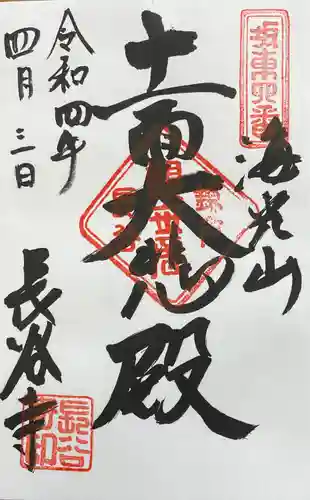 坂東四番
海光山
十一面大悲殿
長谷寺
令和四年
四月三日